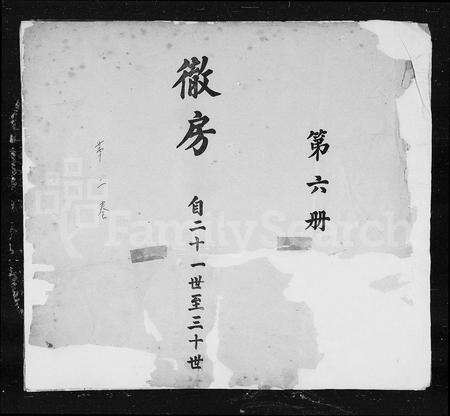 第六册
徹房
自二十一世至三十世
第二卷
FamilySearch